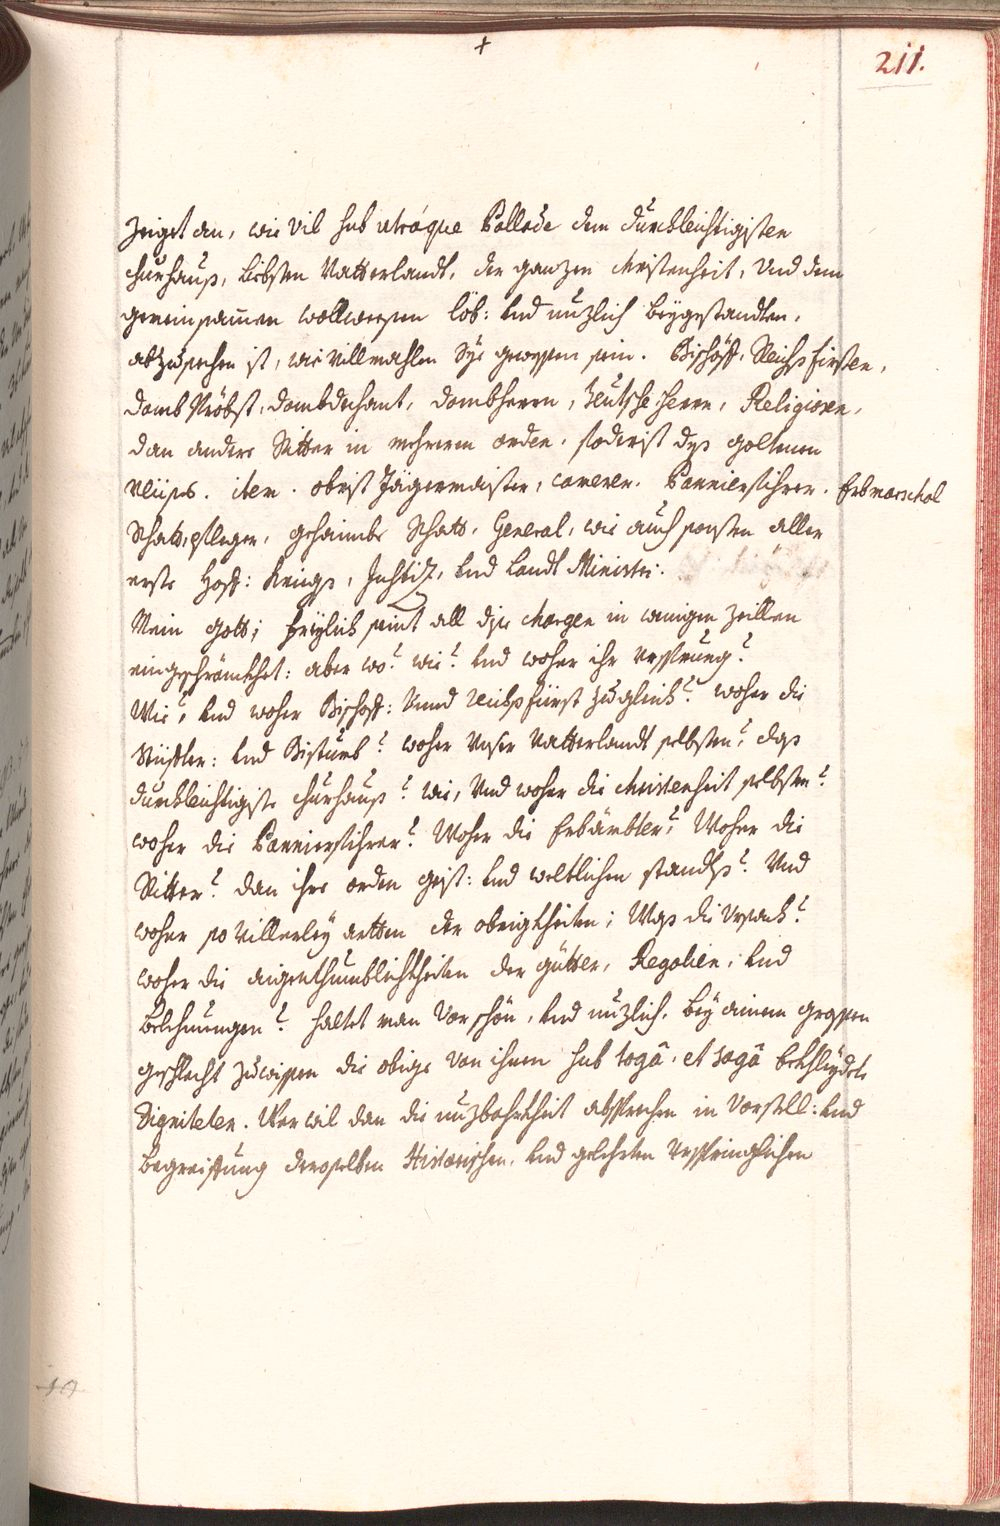 +
211.
Zeiget an, wie vil sub utráque Pallade dem durchleichtigisten
churhauß, liebsten Vatterlandt, der ganzen christenheit, Und dem
gemeinsamen wollweesen löb: und nuzlich beygestandten,
abzusechen ist, wie villmahlen Sye gewessen sein. Bischöff, Reichsfirsten,
domb Pröbst, dombdechant, dombherrn, Teutsche herrn, Religiosen,
dan andere Ritter in mehreren orden, foderist dess goltenen
Vliises. item. obrist Jägermaister, camerer, Pannierfihrer. Erbmarschal
Schatt, pfleger, gehaimbe Rhatt, General, wie auch sonsten aller
erste Hoff: Kriegs, Justiz, und Landt Ministri.
Mein Gott; freylich seint all dise chargen in wenigen Zeillen
eingeschränkhet: aber wo? wie? und woher ihr Ursprung?
Wie? und woher Bischoff: Unnd reichsfürst zugleich? woher die
Stüffter: und Bistumb? woher Unser Vatterlandt selbsten? dass
durchleichtigiste churhauß? wie, Und woher die christenheit selbsten?
woher die Pannierfihrer? Woher die Erbämbter? Woher die
Ritter? dan ihre orden geist: und weltlichen standtß? Und
woher so villerley artten der obrigkheiten; Wass die Ursach?
woher die aigenthumblichkheiten der gütter, Regalien, und
Belehnungen? haltet man Vor schön, und nuzlich, bey ainem grossen
geschlecht zuwissen die obige von ihnen sub togâ, et sagâ bekhleydete
Digniteten. Wer wil dan die nuzbahrkheit absprechen in Vorstell: und
begreiffung derselben Historischen, und gelehrten Ursspringlichen